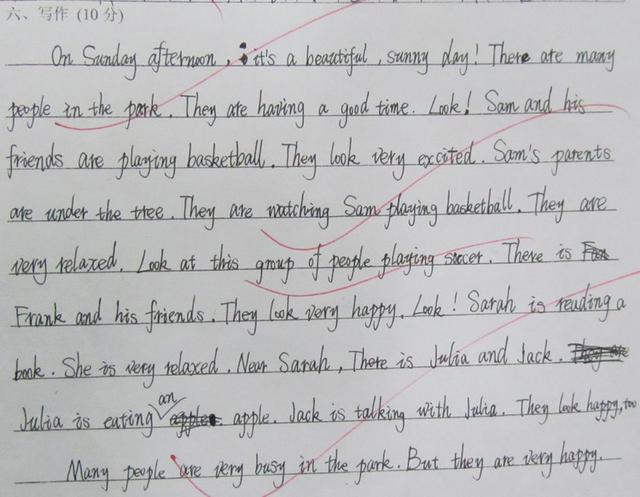 六、写作 (10分)
On Sunday afternoon, it's a beautiful, sunny day! There are many
people in the park. They are having a good time. Look! Sam and his
friends are playing basketball. They look very excited. Sam's parents
are under the tree. They are watching Sam playing basketball. They are
very relaxed. Look at this group of people playing soccer. There is
Frank and his friends. They look very happy. Look! Sarah is reading a
book. She is very relaxed. Near Sarah, There is Julia and Jack.
Julia is eating an apple. Jack is talking with Julia. They look happy, too
Many people are very busy in the park. But they are very happy.